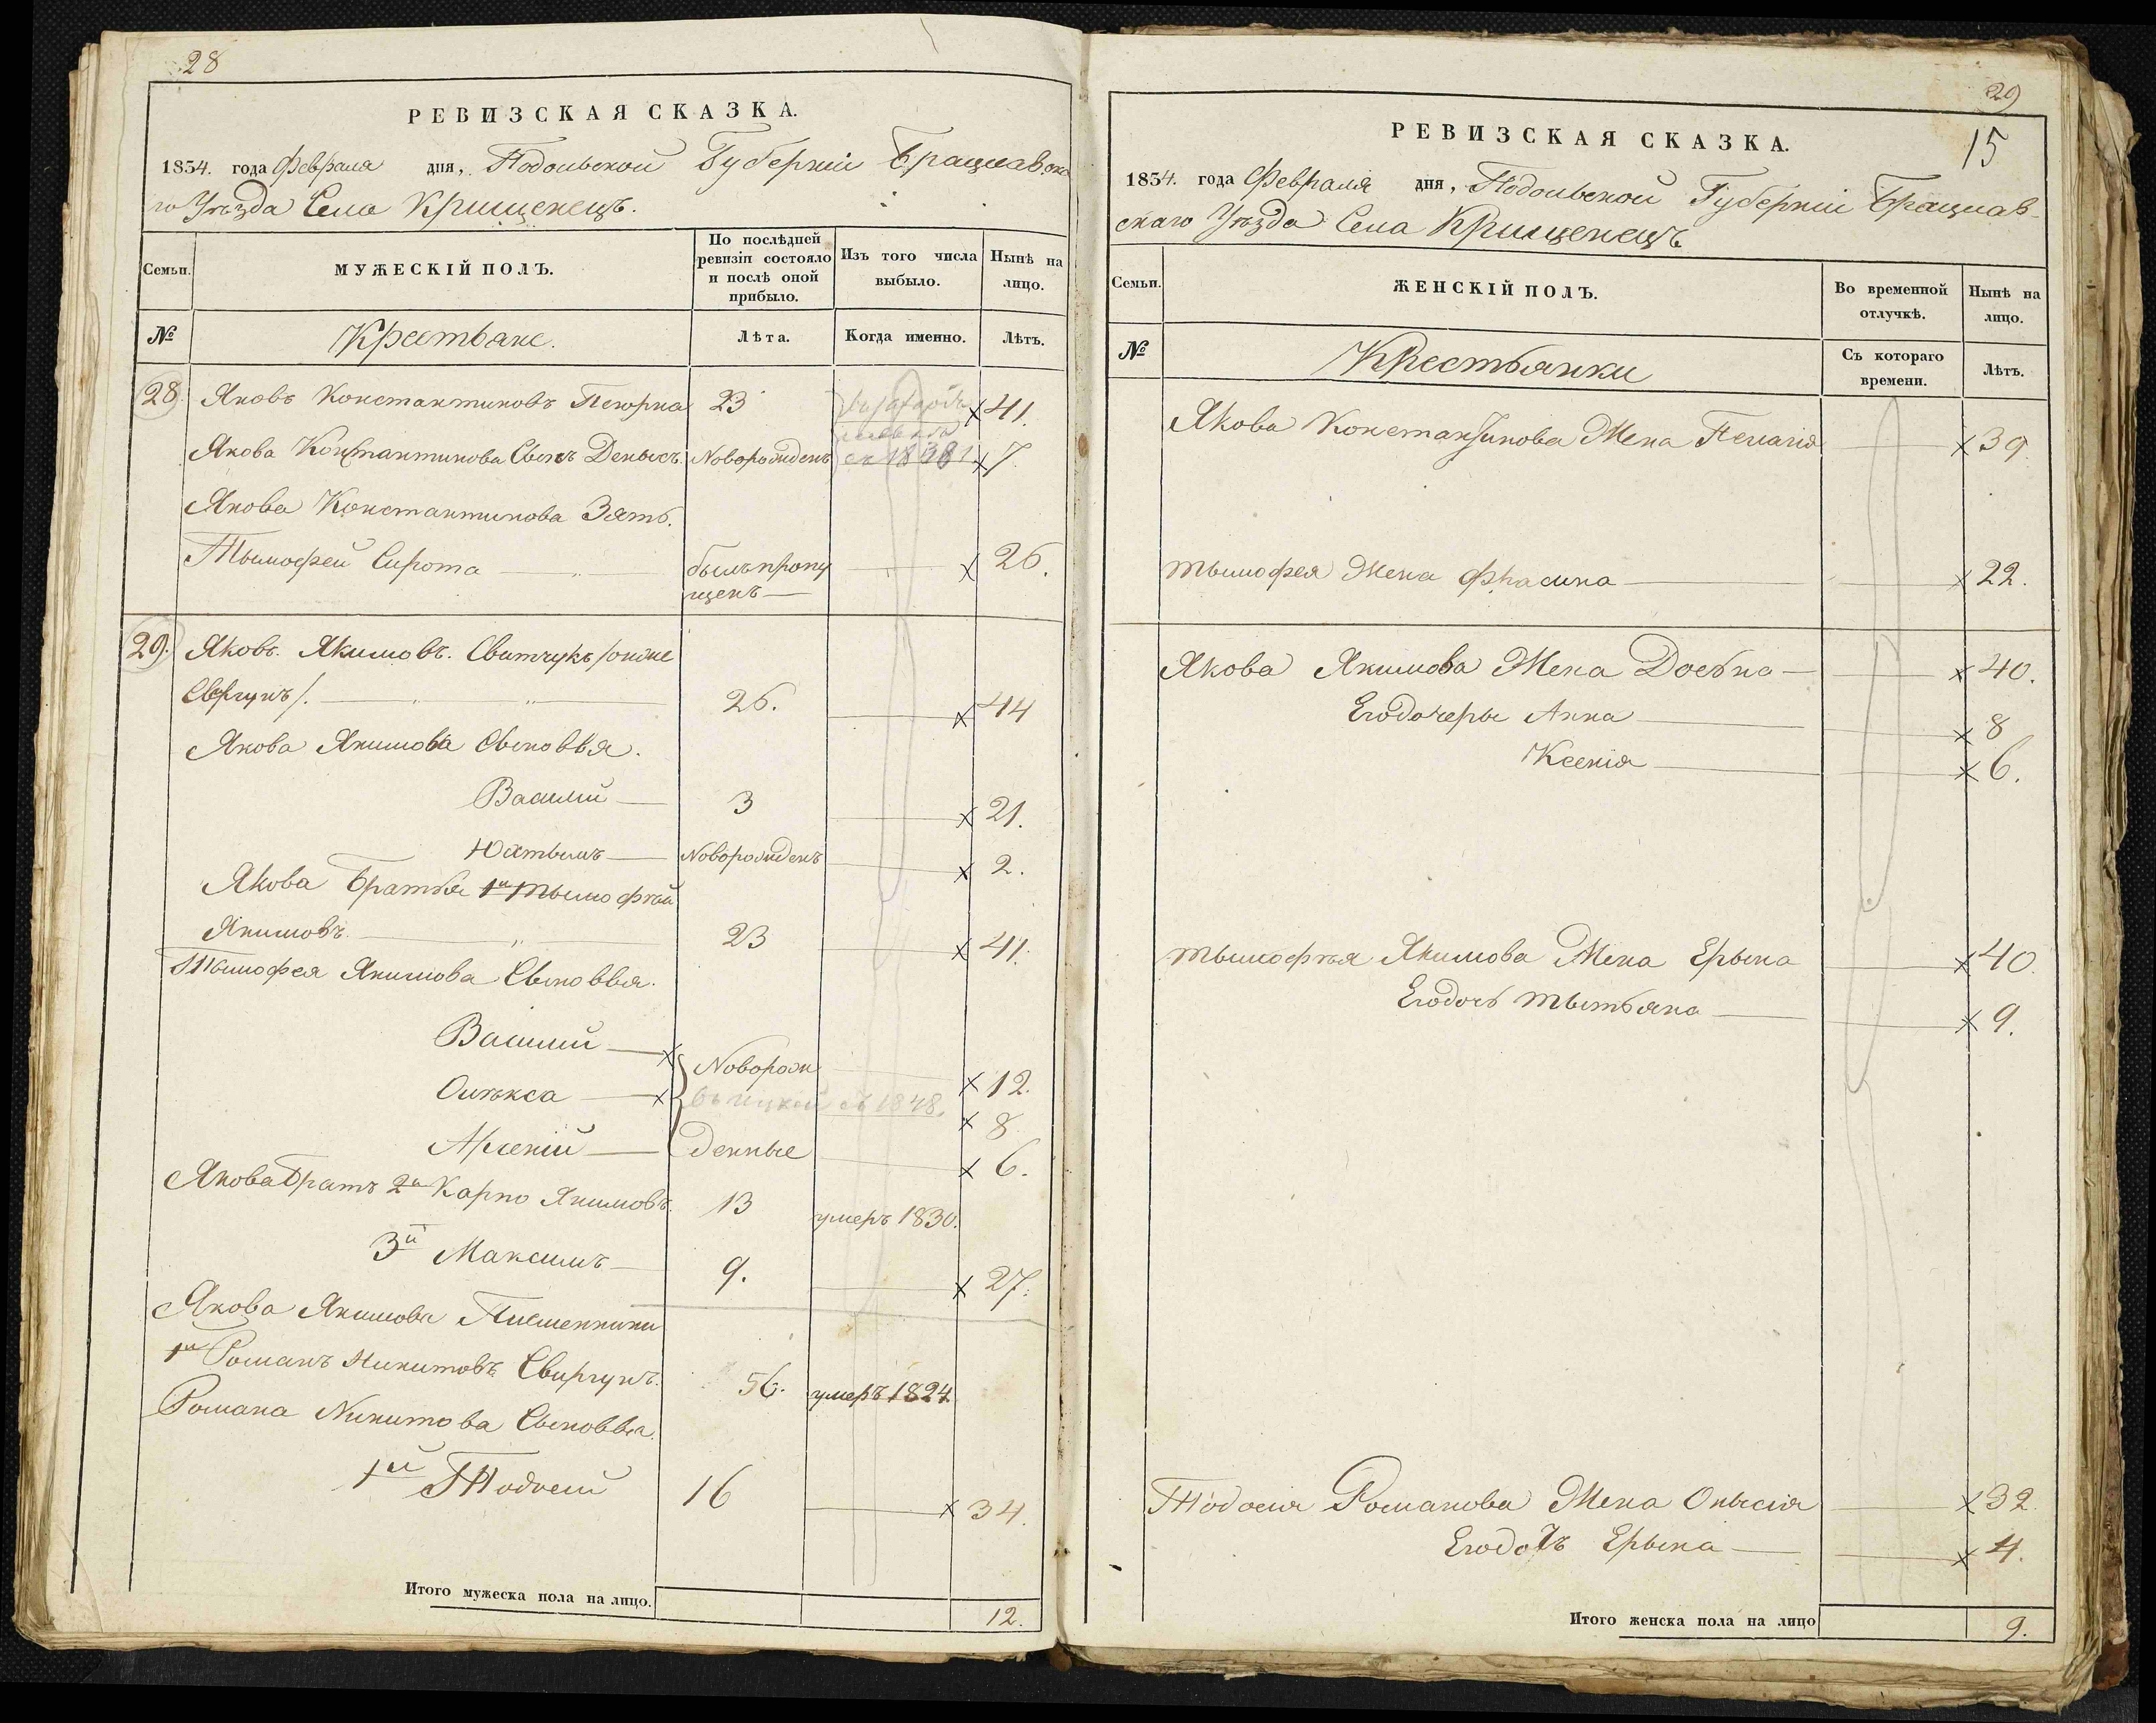 28
РЕВИЗСКАЯ СКАЗКА.
1834. года Февраля дня, Подольской Губерніи Брацлавска
го Уѣзда Села Крищенецъ.
Семьи.
МУЖЕСКІЙ ПОЛЪ.
По послѣдней ревизіи состояло и послѣ оной прибыло.
Изъ того числа выбыло.
Нынѣ на лицо.
№
Крестьяне.
Лѣта.
Когда именно.
Лѣтъ.
28 Яковъ Константиновъ 23 41.
Якова Константинова Сынъ Денысъ. Новорожденъ 7.
Якова Константинова Зять.
Тымофей Сирота былъ пропу 26.
щенъ
29. Яковъ. Якимовъ. Свитчукъ /онже
Свергунъ/. 26. 44
Якова Якимова Сыновья.
Василий 3 21.
Новорожденъ 2.
Якова Братья 1й Тымофѣй
Якимовъ. 23 41.
Тымофея Якимова Сыновья.
ВасилийОворож 12.
Олѣкса съ 1848. 8
Арсеній денные 6.
Якова Братъ 2й Карпо Якимовъ. 13 умеръ 1830.
3й Максимъ 9. 27.
Якова Якимова Племенники
1й Романъ Никитовъ Свиргунъ. 56. умеръ 1824
Романа Никитова Сыновья.
1й Тодосій 16 34.
Итого мужеска пола на лицо. 12.
29
15
РЕВИЗСКАЯ СКАЗКА.
1834. года Февраля дня, Подольской Губерніи Брацлав
скаго Уѣзда Села Крищенецъ.
Семьи.
ЖЕНСКІЙ ПОЛЪ.
Во временной отлучкѣ.
Нынѣ на лицо.
№
Крестьянки
Съ котораго времени.
Лѣтъ.
Якова Константинова Жена Пелагія 39
Тымофея Жена Фрасина 22.
Якова Якимова Жена Досьна 40.
Егодочеры Анна 8
Ксенія 6.
Тымофѣя Якимова Жена Ерына 40.
Егодочь Тытьяна 9.
Тодосія Романова Жена Онысія 32.
Егодочь Ерына 4.
Итого женска пола на лицо 9.